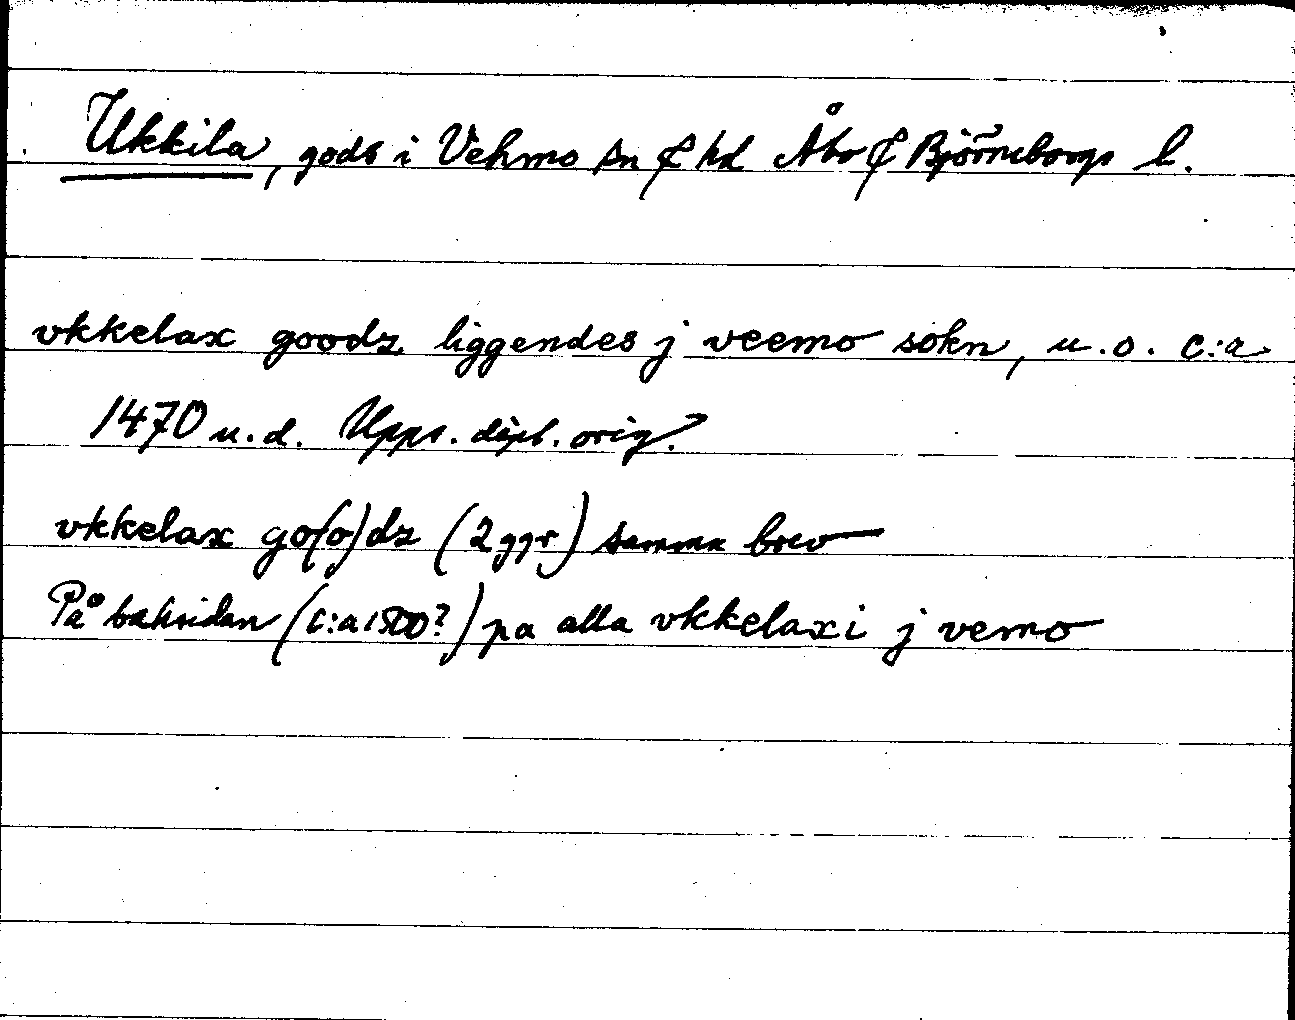 Ukkila, gods i Vehmo sn & hd Åbo & Björneborgs l.
vkkelax goodz liggendes j veemo sokn, u.o. c:a
1470 u.d. Upps. dipl. orig.
vkkelax go(o)dz (2 ggr) samma brev
På baksidan (c:a 1500?) pa alla vkkelaxi j vemo